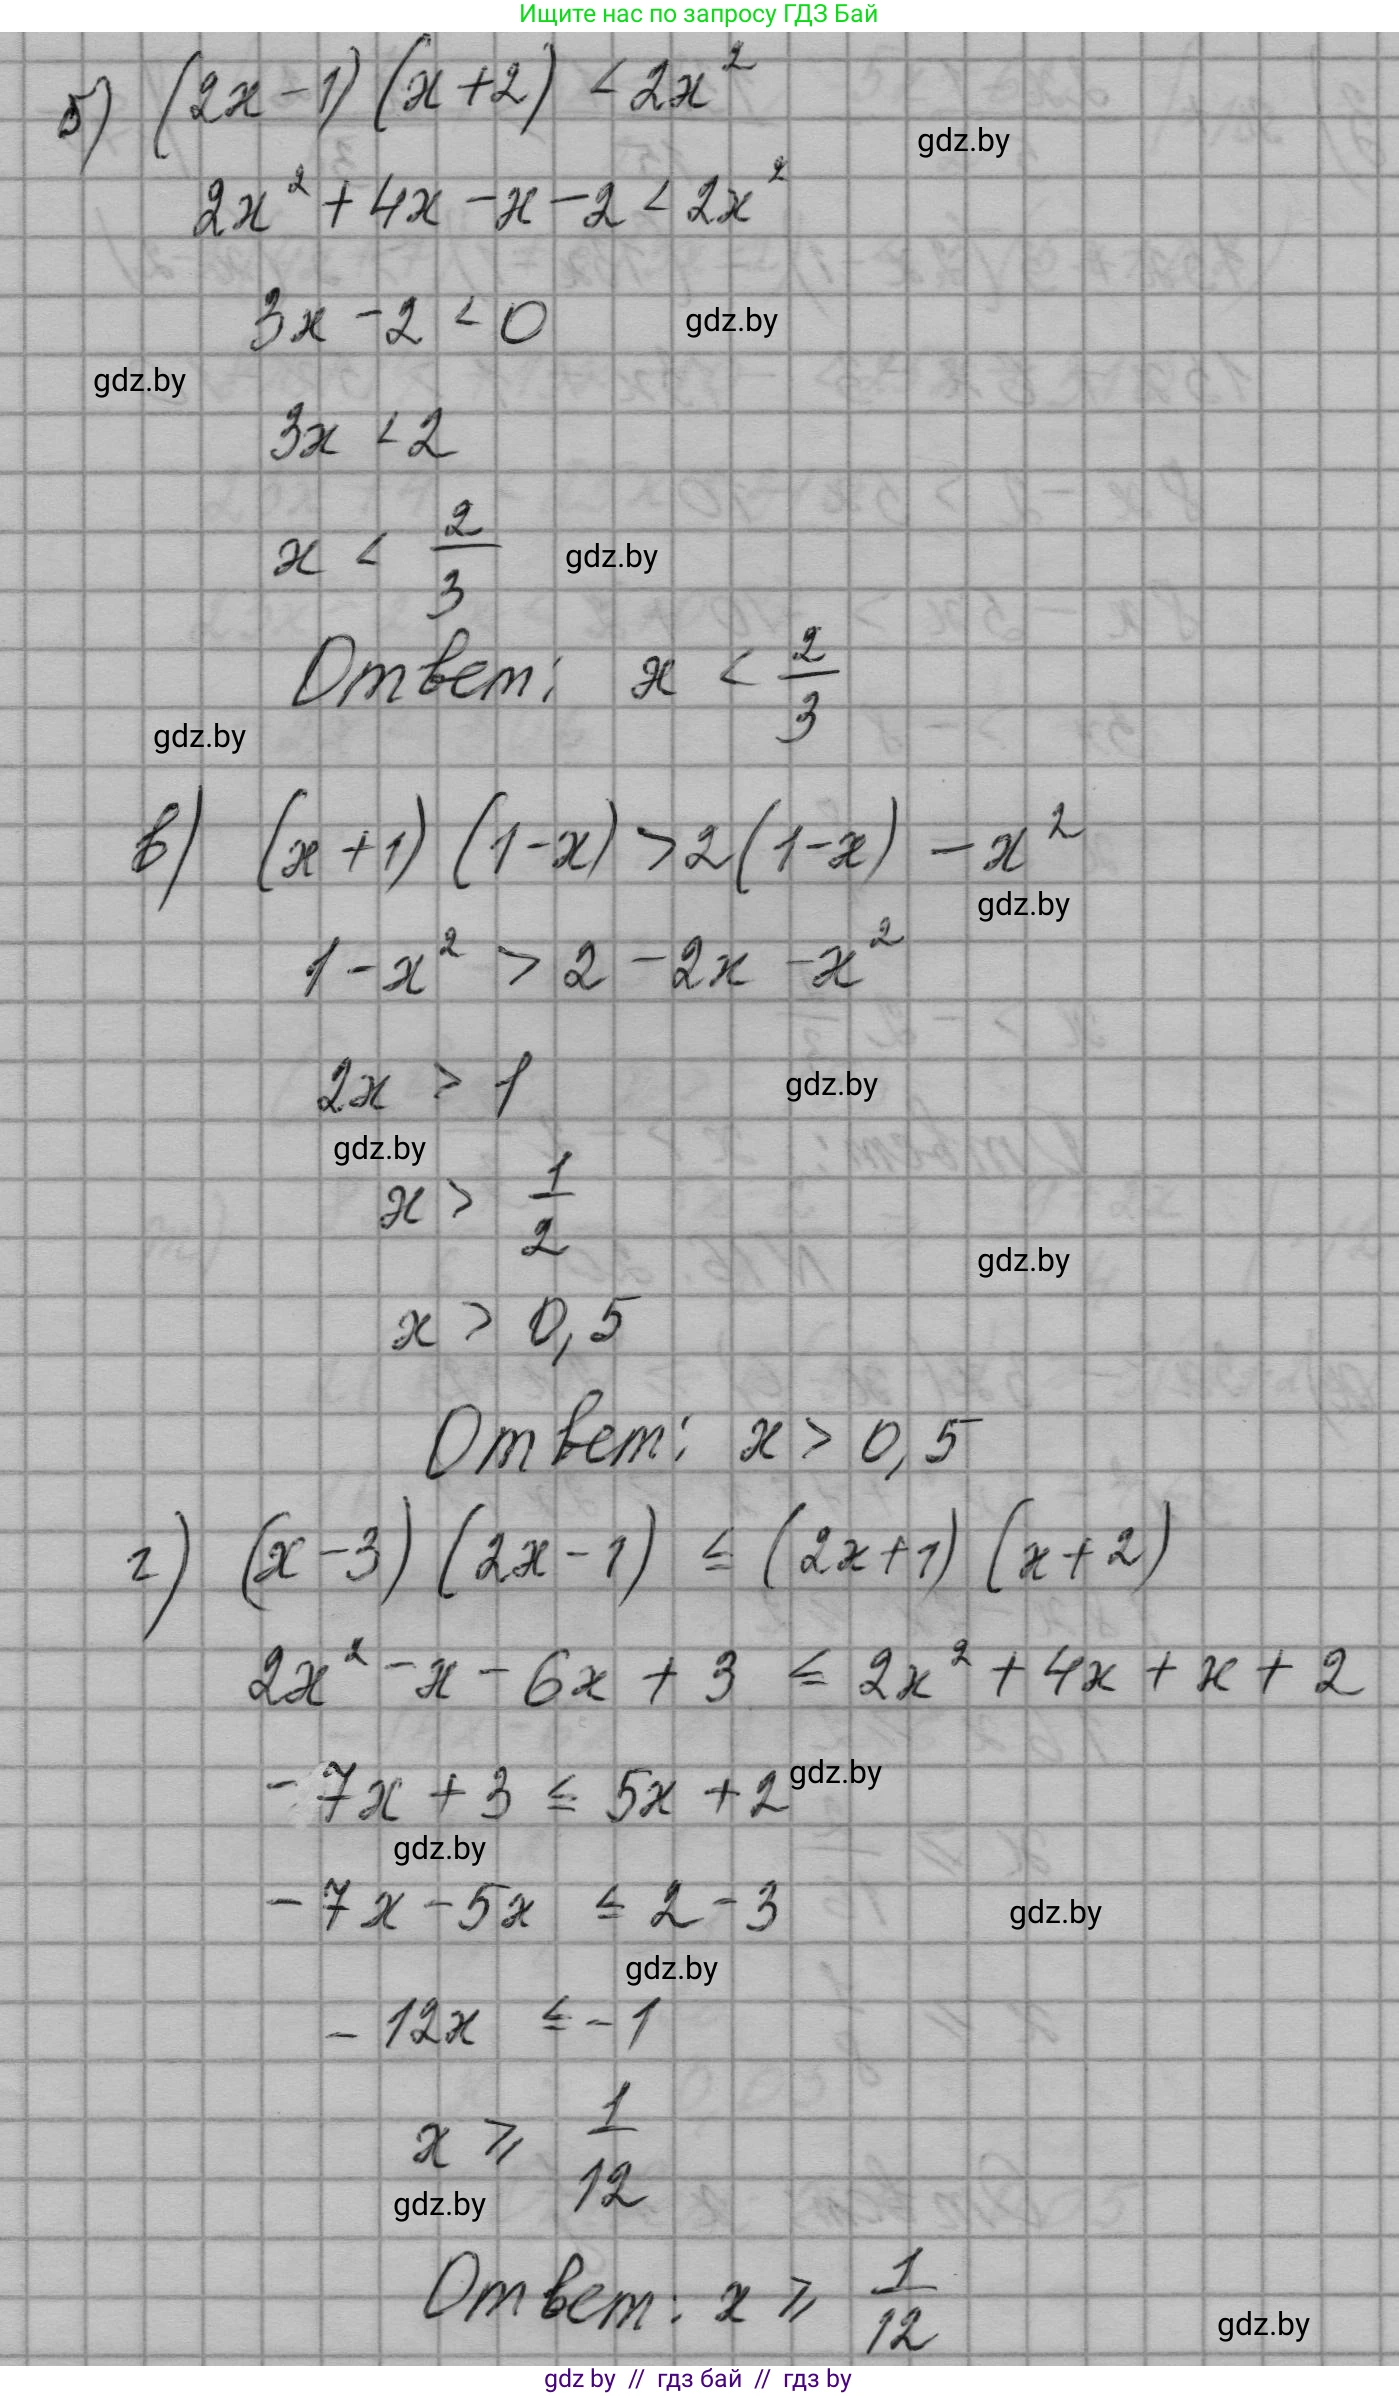 Ищите нас по запросу ГДЗ Бай
б) (2x-1)(x+2) < 2x²
gdz.by
2x² + 4x - x - 2 < 2x²
3x - 2 < 0
gdz.by
gdz.by
3x < 2
x < 2/3
gdz.by
Ответ: x < 2/3
gdz.by
в) (x+1)(1-x) > 2(1-x) - x²
gdz.by
1 - x² > 2 - 2x - x²
2x > 1
gdz.by
gdz.by
x > 1/2
gdz.by
x > 0,5
Ответ: x > 0,5
г) (x-3)(2x-1) ≤ (2x+1)(x+2)
2x² - x - 6x + 3 ≤ 2x² + 4x + x + 2
-7x + 3 ≤ 5x + 2
gdz.by
gdz.by
-7x - 5x ≤ 2 - 3
gdz.by
gdz.by
-12x ≤ -1
x ⩾ 1/12
gdz.by
Ответ: x ⩾ 1/12
gdz.by
gdz by // гдз бай // гдз by